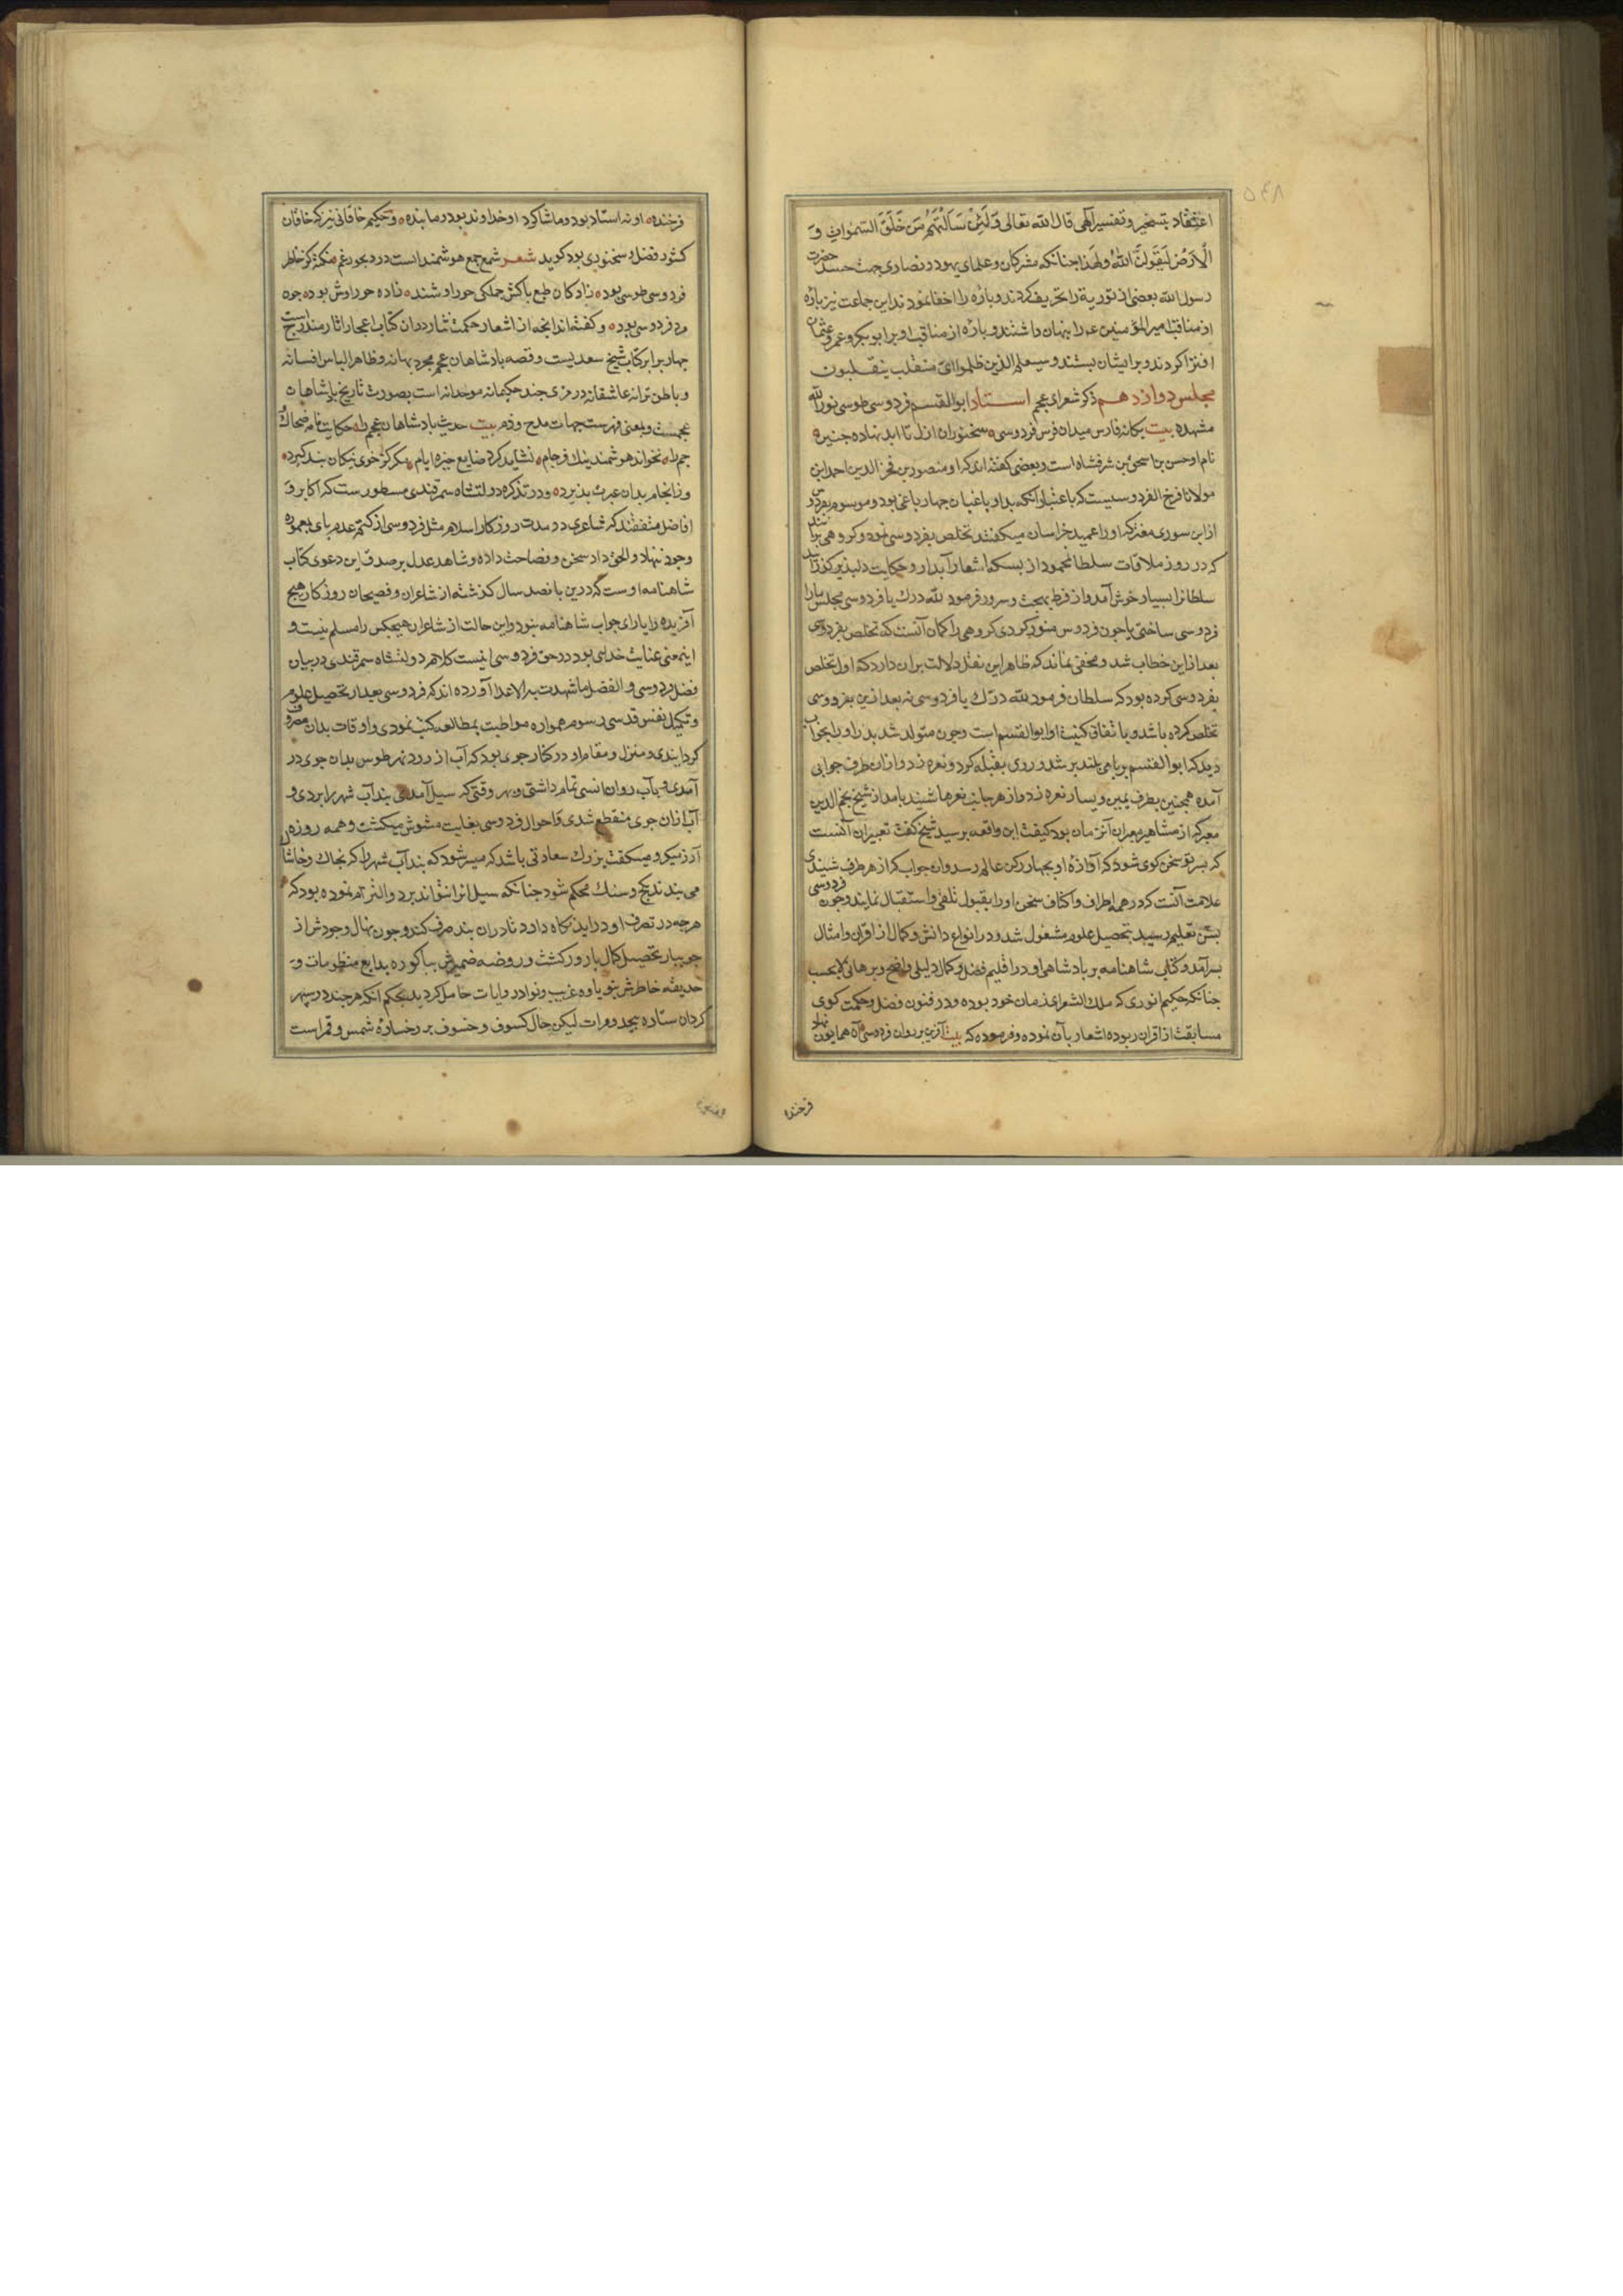 اعتقاد بتسخیر و تفسیر آلهی قال الله تعالی وَلَئِنْ سَاَلْتَهُمْ مَنْ خَلَقَ السَّمٰواتِ وَ
الْاَرْضَ لَیَقُولُنَّ اللهُ ولهذا جنانکه مشرکان و علمای یهود و نصاری جهت حسد حضرت
رسول الله بعضی از توریة را تحریف کردند و باره را اخفا نمودند این جماعت نیز باره
از مناقب امیر المؤمنین ع را بنهان داشتند و باره از مناقب او بر ابو بکر و عمر و عثمان
افترا کردند و بر ایشان بستند و سیعلم الذین ظلموا ای منقلب ینقلبون
مجلس دوازدهم ذکر شعرای عجم استاد ابو القسم فردوسی طوسی نور الله
مشهده بیت یکانه فارس میدان فرس فردوسی سخنوران ازل تا ابد نهاده جنین
نام او حسن بن اسحق بن شرفشاه است و بعضی کفته اند که او منصور بن فخر الدین احمد ابن
مولانا فرخ الفردوسیست که باعتبار آنکه بدر او باغبان جهار باغی بود و موسوم بفردوس
از ابن سوری معتز که او را عمید خراسان میکفتند تخلص بفردوسی نموده و کروهی برانند
که در روز ملاقات سلطان محمود از بسکه اشعار آبدار و حکایت دلبذیر کذرانید
سلطانرا بسیار خوش آمد و از فرط بهجت و سرور فرمود لله درک یا فردوسی مجلس ما را
فردوسی ساختی یا جون فردوس منور کردی کروهی را کمان آنست که تخلص بفردوسی
بعد از این خطاب شد و مخفی نماند که ظاهر این نقل دلالت بران دارد که اول تخلص
بفردوسی کرده بود که سلطان فرمود لله درک یا فردوسی نه بعد ازین بفردوسی
تخلص کرده باشد و باتفاق کنیت او ابو القسم است و جون متولد شد بدر او را بخواب
دید که ابو القسم بر بامی بلند بر شد و روی بقبله کرد و نعره زد و از ان طرف جوابی
آمد همجنین بطرف یمین و یسار نعره زد و از هر جانب نعرها شنید بامداد از شیخ نجم الدین
معبر که از مشاهیر معبران آنزمان بود کیفیت این واقعه برسید شیخ کفت تعبیر ان آنست
که بسر تو سخن کوی شود که آوازه او بجهار رکن عالم رسد و ان جواب که از هر طرف شنیدی
علامت آنست که در همه اطراف و اکناف سخن او را بقبول تلقی و استقبال نمایند و جون فردوسی
بسن تعلیم رسید بتحصیل علوم مشغول شد و در انواع دانش و کمال از اقران و امثال
بسر آمد و کتاب شاهنامه بر بادشاهی او در اقلیم فضل و کمال دلیلی واضح و برهانی لایحست
جنانکه حکیم انوری که ملک الشعرای زمان خود بوده و در فنون فضل و حکمت کوی
مسابقت از اقران ربوده اشعار بآن نموده و فرموده که بیت آفرین بر روان فردوسی آن همایون نهاد
فرخنده
فرخنده او نه استاد بود و ما شاکرد او خداوند بود و ما بنده و حکیم خاقانی نیز که خاقان
کشور فضل و سخنوری بود کوید شعر شمع جمع هوشمندانست در دیجور غم نکته کز خاطر
فردوسی طوسی بود زادکان طبع باکش جملکی حوراوشند زاده حوراوش بود جون
مرد فردوسی بود و کفته اند آنجه از اشعار حکمت شار در ان کتاب اعجاز اثار مندرج است
جهار برابر کتاب شیخ سعدیست و قصه بادشاهان عجم مجرد بهانه و ظاهر الباس افسانه
و باطن ترانه عاشقانه و رمزی جند حکیمانه موحدانه است بصورت تاریخ بادشاهان
عجمست و بمعنی فهرست جهات مدح و ذم بیت حدیث بادشاهان عجم را حکایت نامه ضحاک و
جم را نخواند هوشمند نیک فرجام نشاید کرد ضایع خیره ایام مکر کز خوی نیکان بند کیرد
وز انجام بدان عبرت بذیرد و در تذکره دولتشاه سمرقندی مسطور ست که اکابر و
افاضل متفقند که شاعری در مدت روزکار اسلام مثل فردوسی از کتم عدم بای بمعموره
وجود ننهاد و الحق داد سخن و فصاحت داده و شاهد عدل بر صدق این دعوی کتاب
شاهنامه اوست که درین بانصد سال کذشته از شاعران و فصیحان روزکار هیج
آفریده را یارای جواب شاهنامه نبود و این حالت از شاعران هیجکس را مسلم نیست و
اینمعنی عنایت خدای بود در حق فردوسی انیست کلام دولتشاه سمرقندی در بیان
فضل فردوسی و الفضل ما شهدت به الاعدا آورده اند که فردوسی بعد از تحصیل علوم
و تکمیل نفس قدسی رسوم همواره مواظبت بمطالعه کتب نمودی و اوقات بدان مصروف
کردانیدی و منزل و مقام او در کنار جوی بود که آب از رود نهر طوس بدان جوی در
آمدی و بآب روان انسی تمام داشتی و هر وقتی که سیل آمدی بند آب شهر را بردی و
آب ازان جوی منقطع شدی و احوال فردوسی بغایت مشوش میکشت و همه روزه این
آرزو میکرد و میکفت بزرک سعادتی باشد که میسر شود که بند آب شهر را که بخاک و خاشاک
می بندند بکج و سنک محکم شود جنانکه سیل انرا نتواند برد و التزام نموده بود که
هر جه در تصرف او در اید نکاه دارد تا در ان بند صرف کند و جون نهال وجودش از
جویبار تحصیل کمال بارور کشت و روضه ضمیرش بباکوره بدایع منظومات و
حدیقه خاطرش بنوباوه غریب و نوادر روایات حامل کردید بحکم آنکه هر جند در سبهر
کردان ستاره بیحد و مراست لیکن حال کسوف و خسوف بر رخساره شمس و قمر است